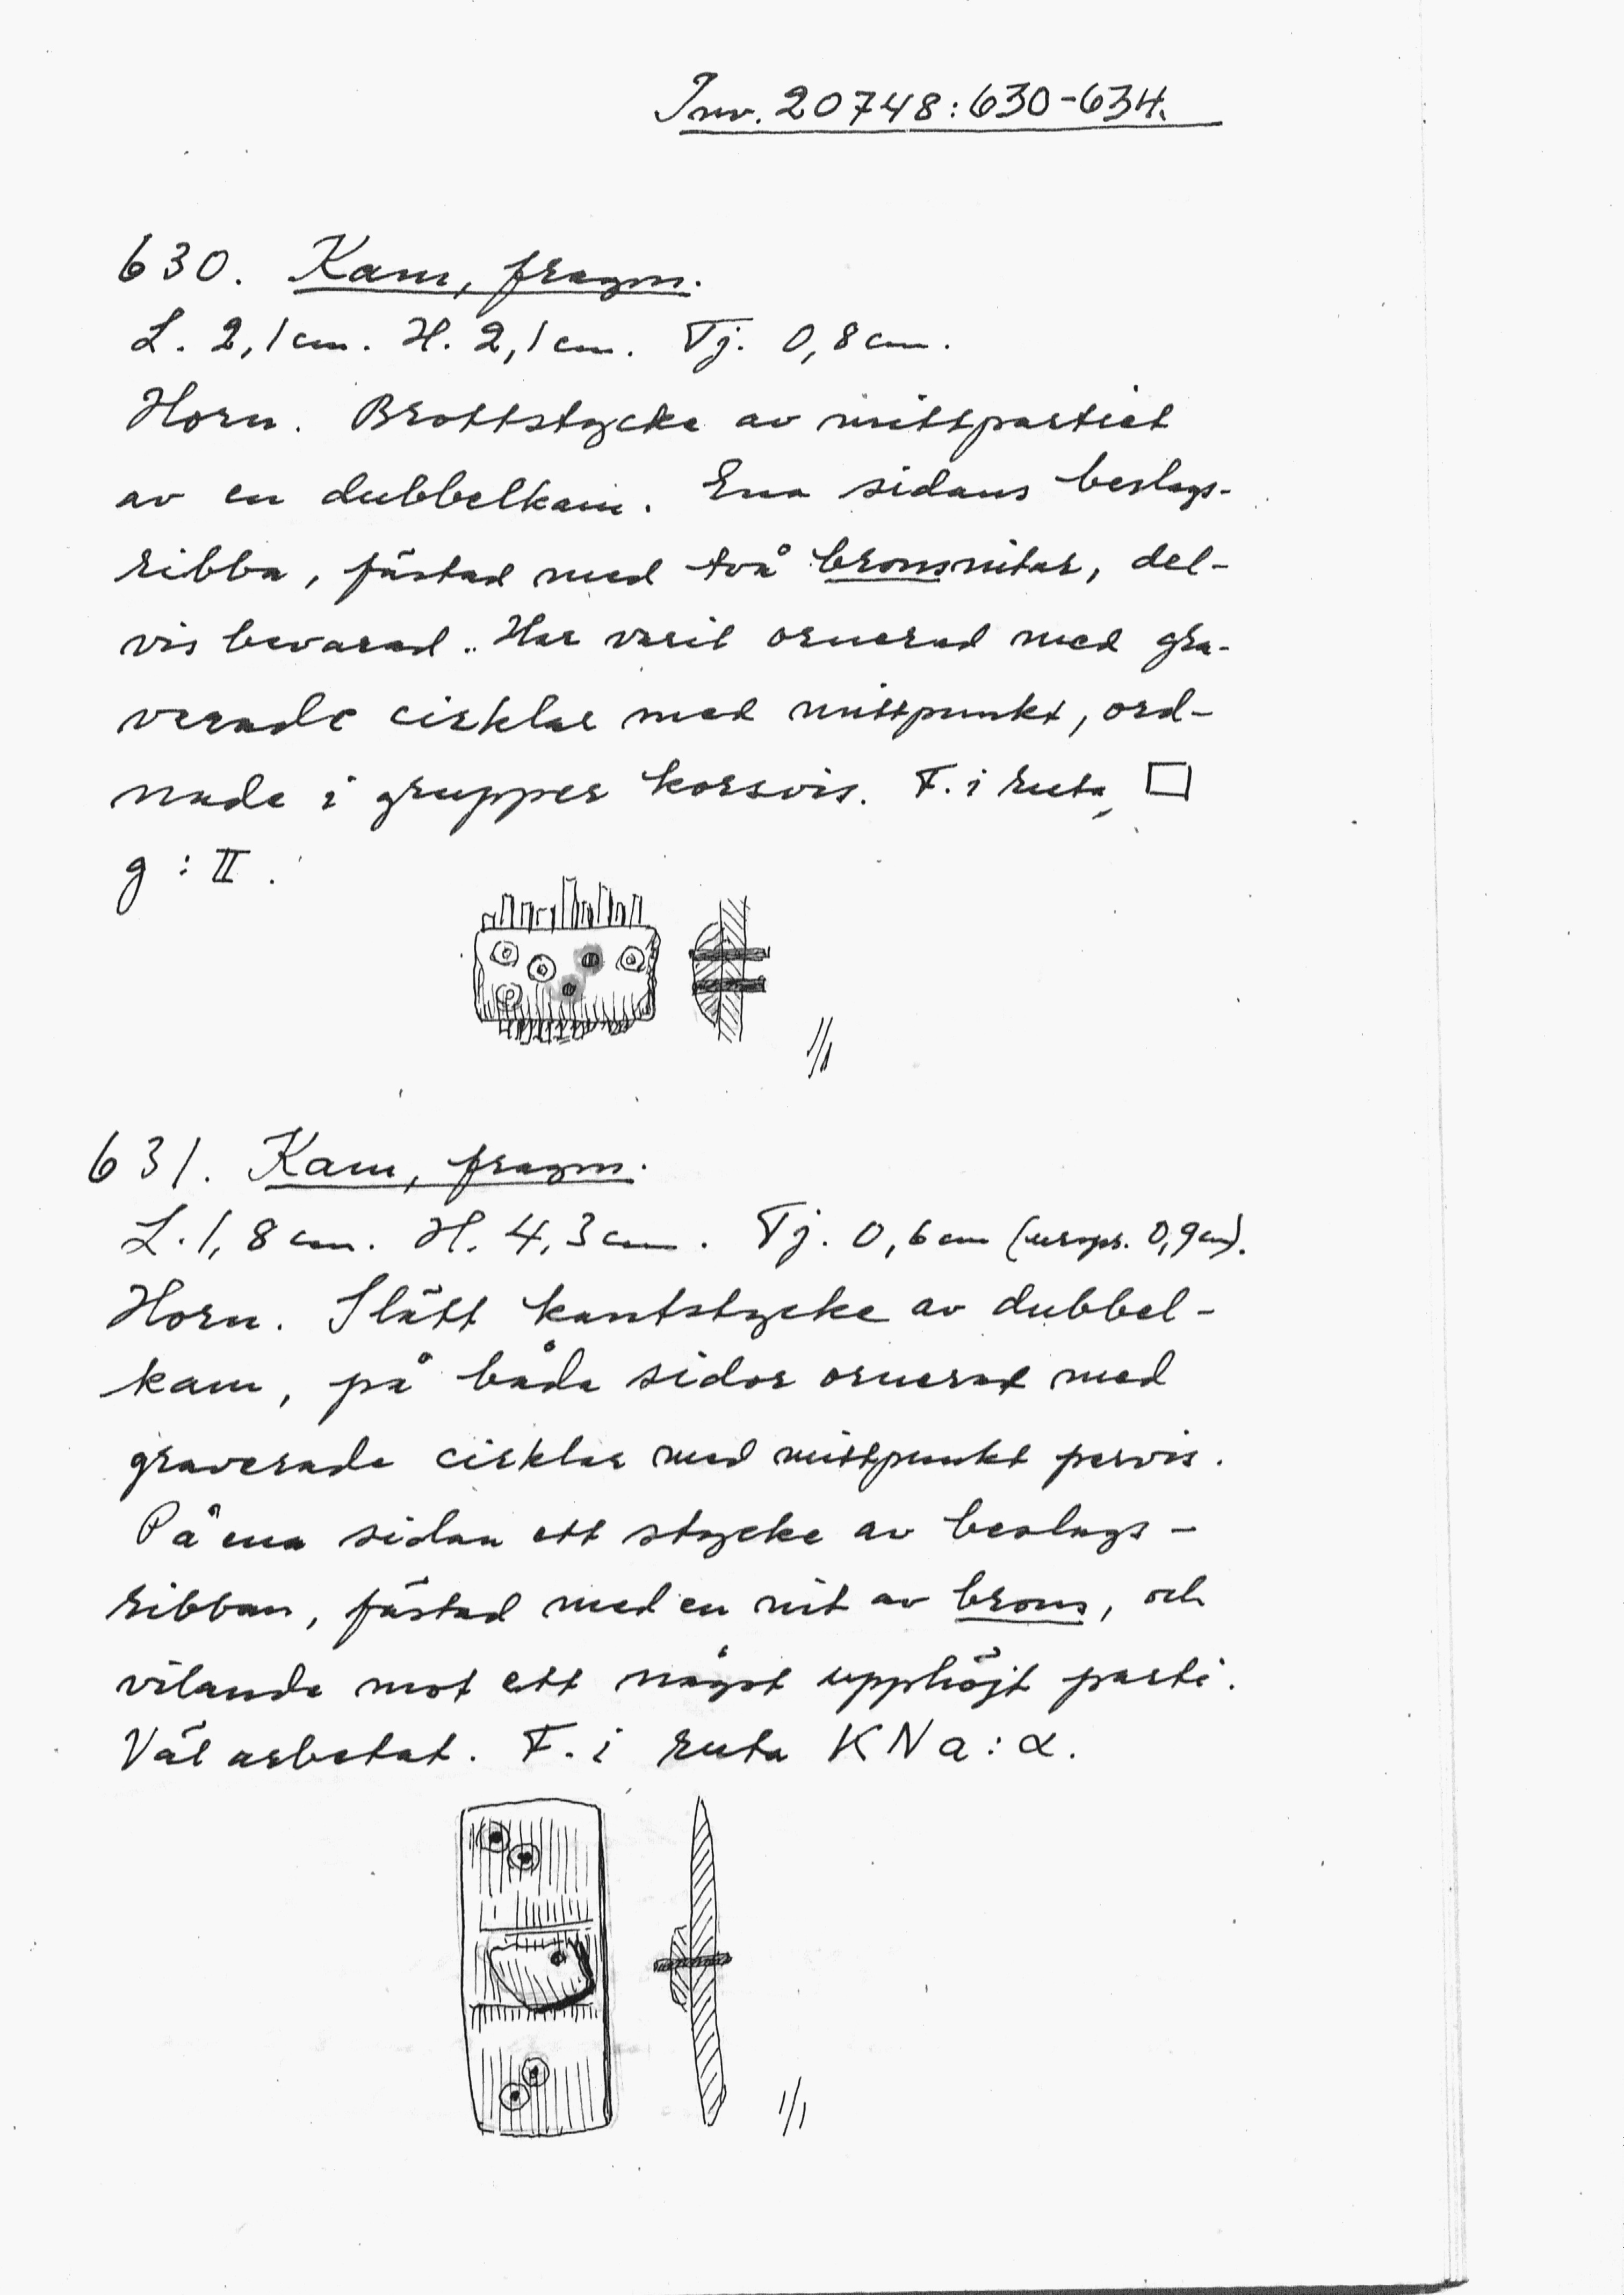 Inv. 20748:630-634.
630. Kam, fragm.
L. 2,1 cm. H. 2,1 cm. Tj. 0,8 cm.
Horn. Brottstycke av mittpartiet
av en dubbelkam. Ena sidans beslags-
ribba, fästad med två bronsnitar, del-
vis bevarad. Har varit ornerad med gra-
verade cirklar med mittpunkt, ord-
nade i grupper korsvis. F. i ruta □
g : II.
1/1
631. Kam, fragm.
L. 1,8 cm. H. 4,3 cm. Tj. 0,6 cm (urspr. 0,9 cm).
Horn. Slätt kantstycke av dubbel-
kam, på båda sidor ornerat med
graverade cirklar med mittpunkt parvis.
På ena sidan ett stycke av beslags-
ribban, fästad med en nit av brons, och
vilande mot ett något upphöjt parti.
Väl arbetat. F. i ruta KN a : α.
1/1